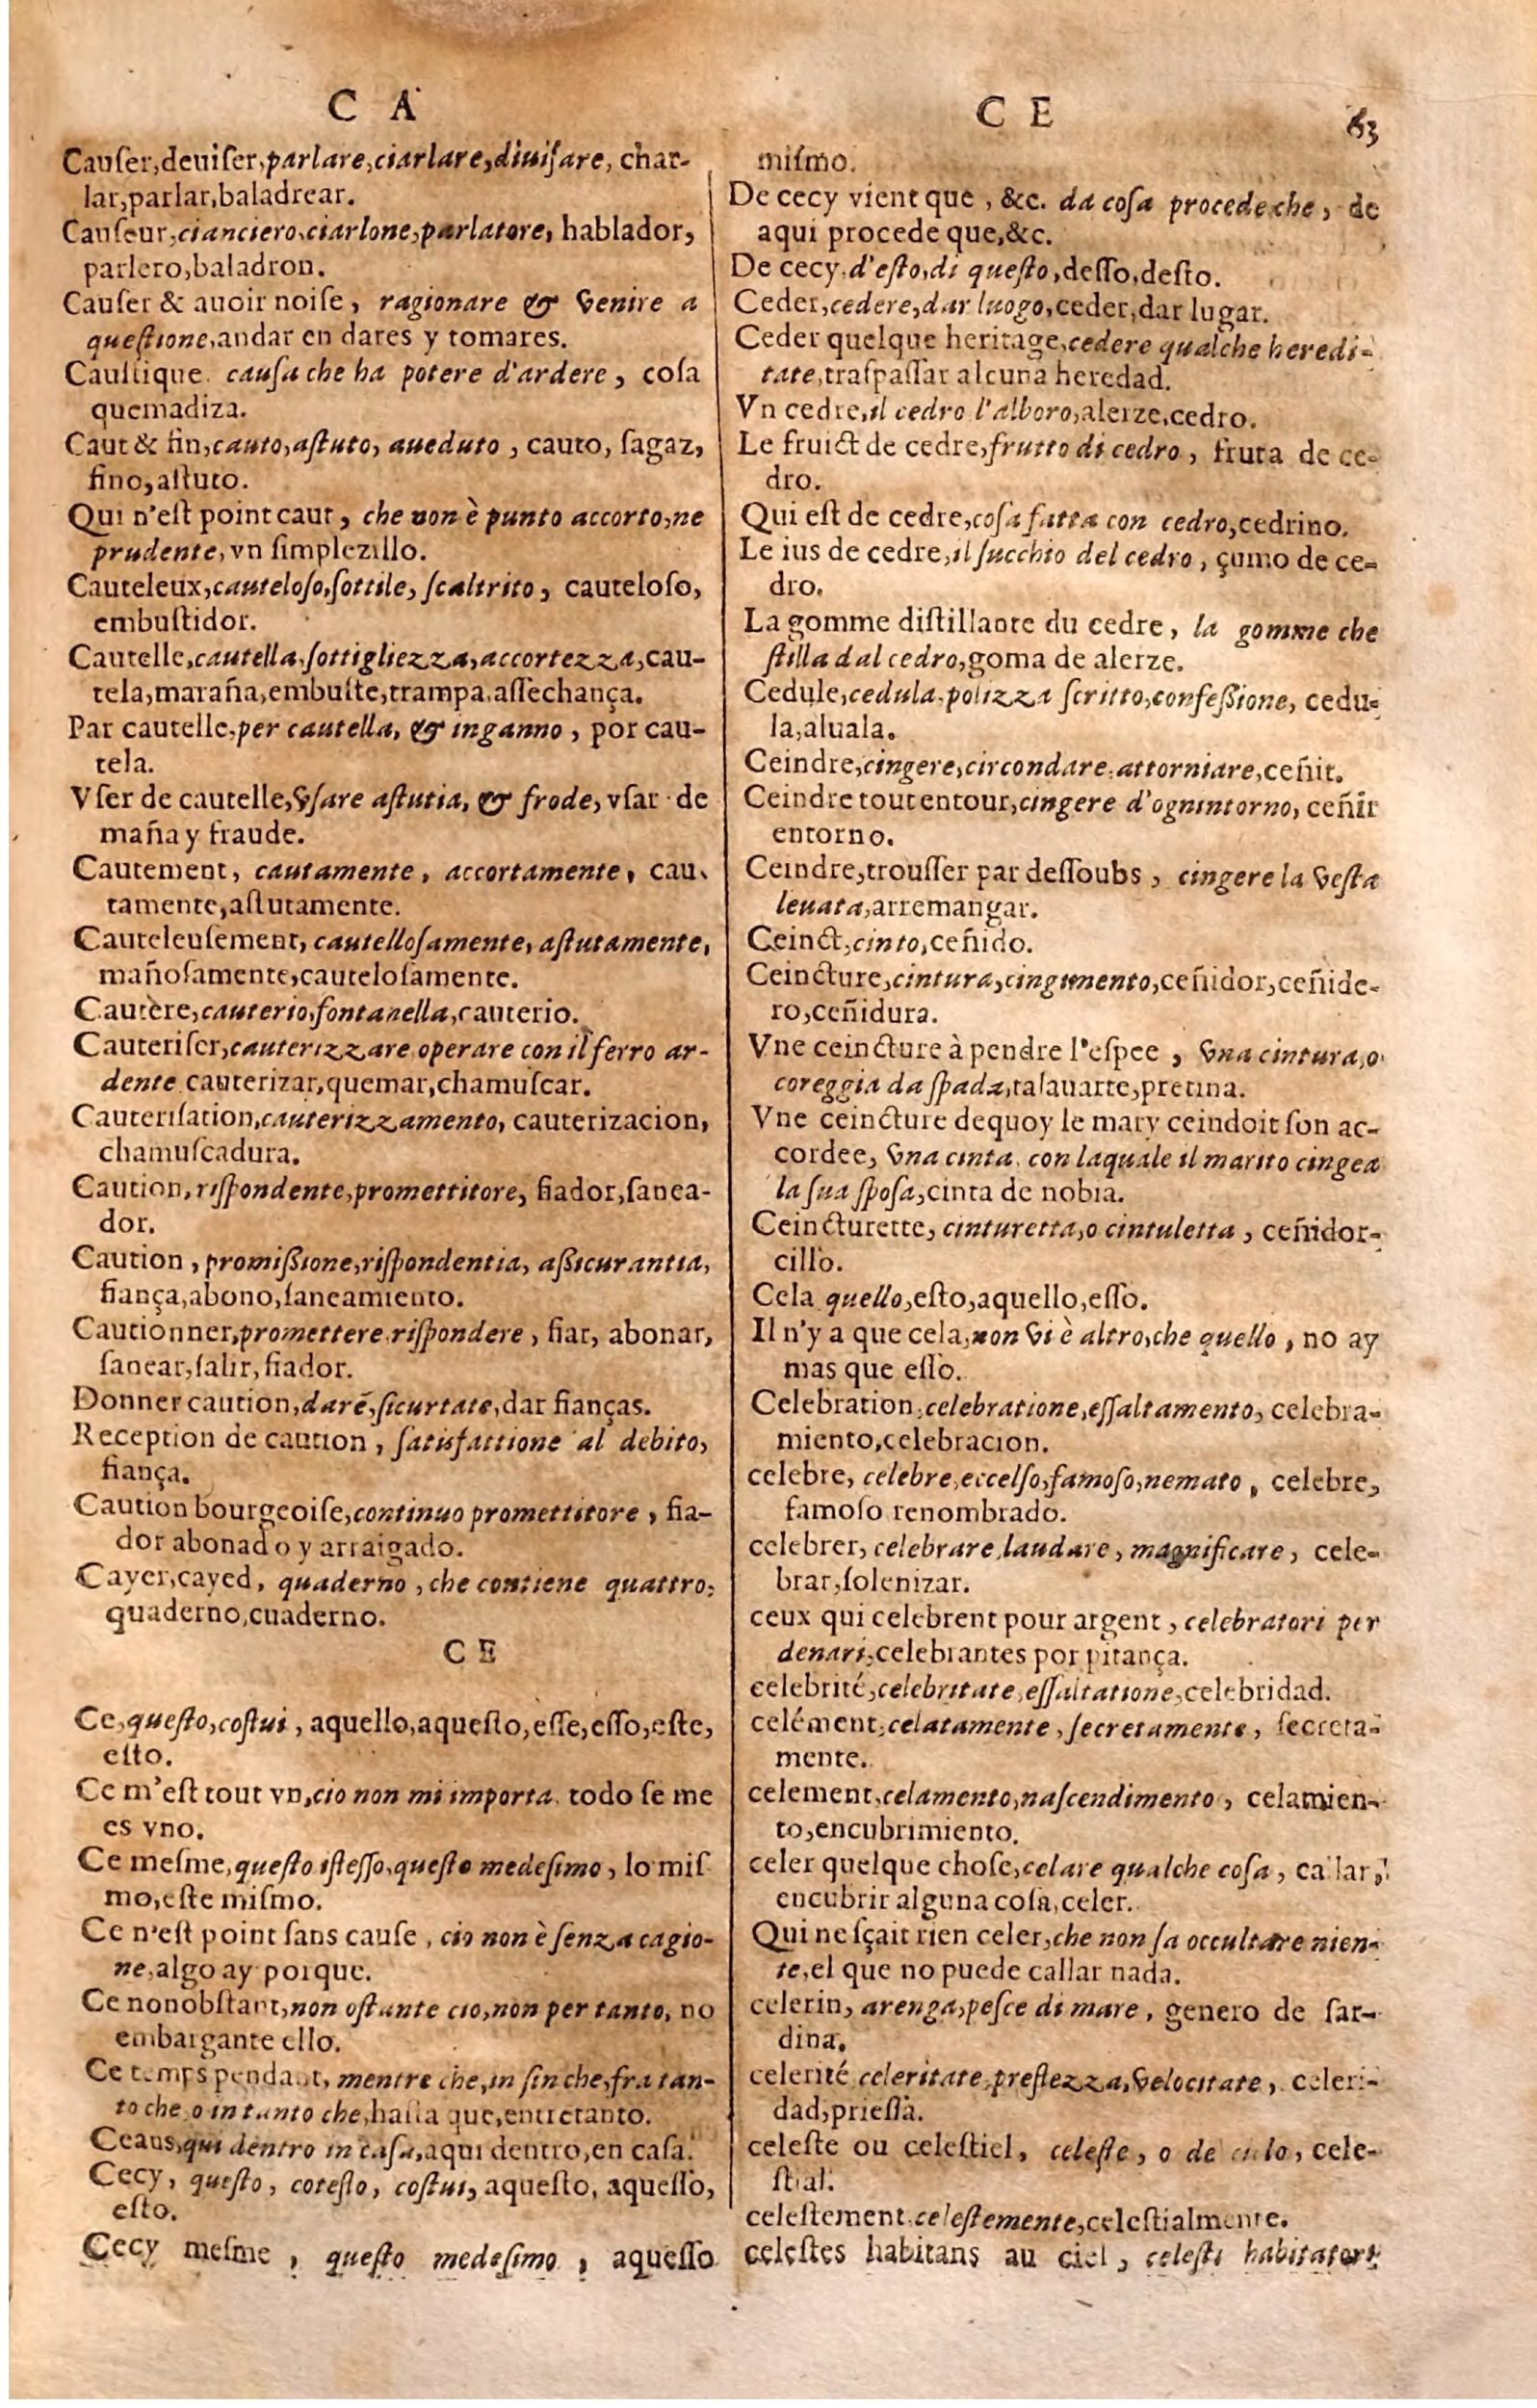 C A
Cauſer,deuiſer,parlare,ciarlare,diuiſare, char-
lar,parlar,baladrear.
Cauſeur,cianciero,ciarlone,parlatore, hablador,
parlero,baladron.
Cauſer & auoir noiſe, ragionare & venire a
queſtione,andar en dares y tomares.
Cauſtique. cauſa che ha potere d'ardere, coſa
quemadiza.
Caut & fin,cauto,aſtuto, aueduto, cauto, ſagaz,
fino,aſtuto.
Qui n'eſt point caut, che non è punto accorto,ne
prudente,vn ſimplezillo.
Cauteleux,cauteloſo,ſottile, ſcaltrito, cauteloſo,
embuſtidor.
Cautelle,cautella,ſottigliezza,accortezza,cau-
tela,maraña,embuſte,trampa,aſſechança.
Par cautelle,per cautella, & inganno, por cau-
tela.
Vſer de cautelle,vſare aſtutia, & frode, vſar de
maña y fraude.
Cautement, cautamente, accortamente, cau-
tamente,aſtutamente.
Cauteleuſement, cautelloſamente, aſtutamente,
mañoſamente,cauteloſamente.
Cautère,cauterio,fontanella,cauterio.
Cauteriſer,cauterizzare,operare con il ferro ar-
dente cauterizar,quemar,chamuſcar.
Cauteriſation,cauterizzamento, cauterizacion,
chamuſcadura.
Caution,riſpondente,promettitore, fiador,ſanea-
dor.
Caution, promißione,riſpondentia, aßicurantia,
fiança,abono,ſaneamiento.
Cautionner,promettere,riſpondere, fiar, abonar,
ſanear,ſalir,fiador.
Donner caution,darẽ,ſicurtate,dar fianças.
Reception de caution, ſatisfattione al debito,
fiança.
Caution bourgeoiſe,continuo promettitore, fia-
dor abonado y arraigado.
Cayer,cayed, quaderno, che contiene quattro,
quaderno,cuaderno.
C E
Ce,queſto,coſtui, aquello,aqueſto,eſſe,eſſo,eſte,
eſto.
Ce m'eſt tout vn,cio non mi importa. todo ſe me
es vno.
Ce meſme,queſto iſteſſo,queſto medeſimo, lo miſ
mo,eſte miſmo.
Ce n'eſt point ſans cauſe, cio non è ſenza cagio-
ne,algo ay porque.
Ce nonobſtant,non oſtante cio,non per tanto, no
embargante ello.
Ce temps pendant, mentre che,in ſin che,fra tan-
to che,o in tanto che,haſta que,entretanto.
Ceans,qui dentro in caſa,aqui dentro,en caſa.
Cecy, queſto, coteſto, coſtui, aqueſto, aqueſſo,
eſto.
Cecy meſme, queſto medeſimo, aqueſſo
C E 63
miſmo.
De cecy vient que, &c. da coſa procede che, de
aqui procede que,&c.
De cecy,d'eſto,di queſto,deſſo,deſto.
Ceder,cedere,dar luogo,ceder,dar lugar.
Ceder quelque heritage,cedere qualche heredi-
tate,traſpaſſar alcuna heredad.
Vn cedre,il cedro l'alboro,alerze,cedro.
Le fruict de cedre,frutto di cedro, fruta de ce-
dro.
Qui eſt de cedre,coſa fatta con cedro,cedrino.
Le ius de cedre,il ſucchio del cedro, çumo de ce-
dro.
La gomme diſtillante du cedre, la gomme che
ſtilla dal cedro,goma de alerze.
Cedule,cedula,polizza ſcritto,confeßione, cedu-
la,aluala.
Ceindre,cingere,circondare,attorniare,ceñir.
Ceindre tout entour,cingere d'ognintorno, ceñir
entorno.
Ceindre,trouſſer par deſſoubs, cingere la veſta
leuata,arremangar.
Ceinct,cinto,ceñido.
Ceincture,cintura,cingimento,ceñidor,ceñide-
ro,ceñidura.
Vne ceincture à pendre l'eſpee, vna cintura,o
coreggia da ſpada,talauarte,pretina.
Vne ceincture dequoy le mary ceindoit ſon ac-
cordee, vna cinta. con laquale il marito cingea
la ſua ſpoſa,cinta de nobia.
Ceincturette, cinturetta,o cintuletta, ceñidor-
cillo.
Cela quello,eſto,aquello,eſſo.
Il n'y a que cela,non vi è altro,che quello, no ay
mas que eſſo.
Celebration,celebratione,eſſaltamento, celebra-
miento,celebracion.
celebre, celebre,eccelſo,famoſo,nemato, celebre,
famoſo renombrado.
celebrer, celebrare,laudare, magnificare, cele-
brar,ſolenizar.
ceux qui celebrent pour argent, celebratori per
denari,celebrantes por pitança.
celebrité,celebritate,eſſaltatione,celebridad.
celément,celatamente, ſecretamente, ſecreta-
mente.
celement,celamento,naſcendimento, celamien-
to,encubrimiento.
celer quelque choſe,celare qualche coſa, callar,
encubrir alguna coſa,celer.
Qui ne ſçait rien celer,che non ſa occultare nien-
te,el que no puede callar nada.
celerin, arenga,peſce di mare, genero de ſar-
dina.
celerité celeritate,preſtezza,velocitate, celeri-
dad,prieſſa.
celeſte ou celeſtiel, celeſte, o de cielo, cele-
ſtial.
celeſtement,celeſtemente,celeſtialmente.
celeſtes habitans au ciel, celeſti habitatori